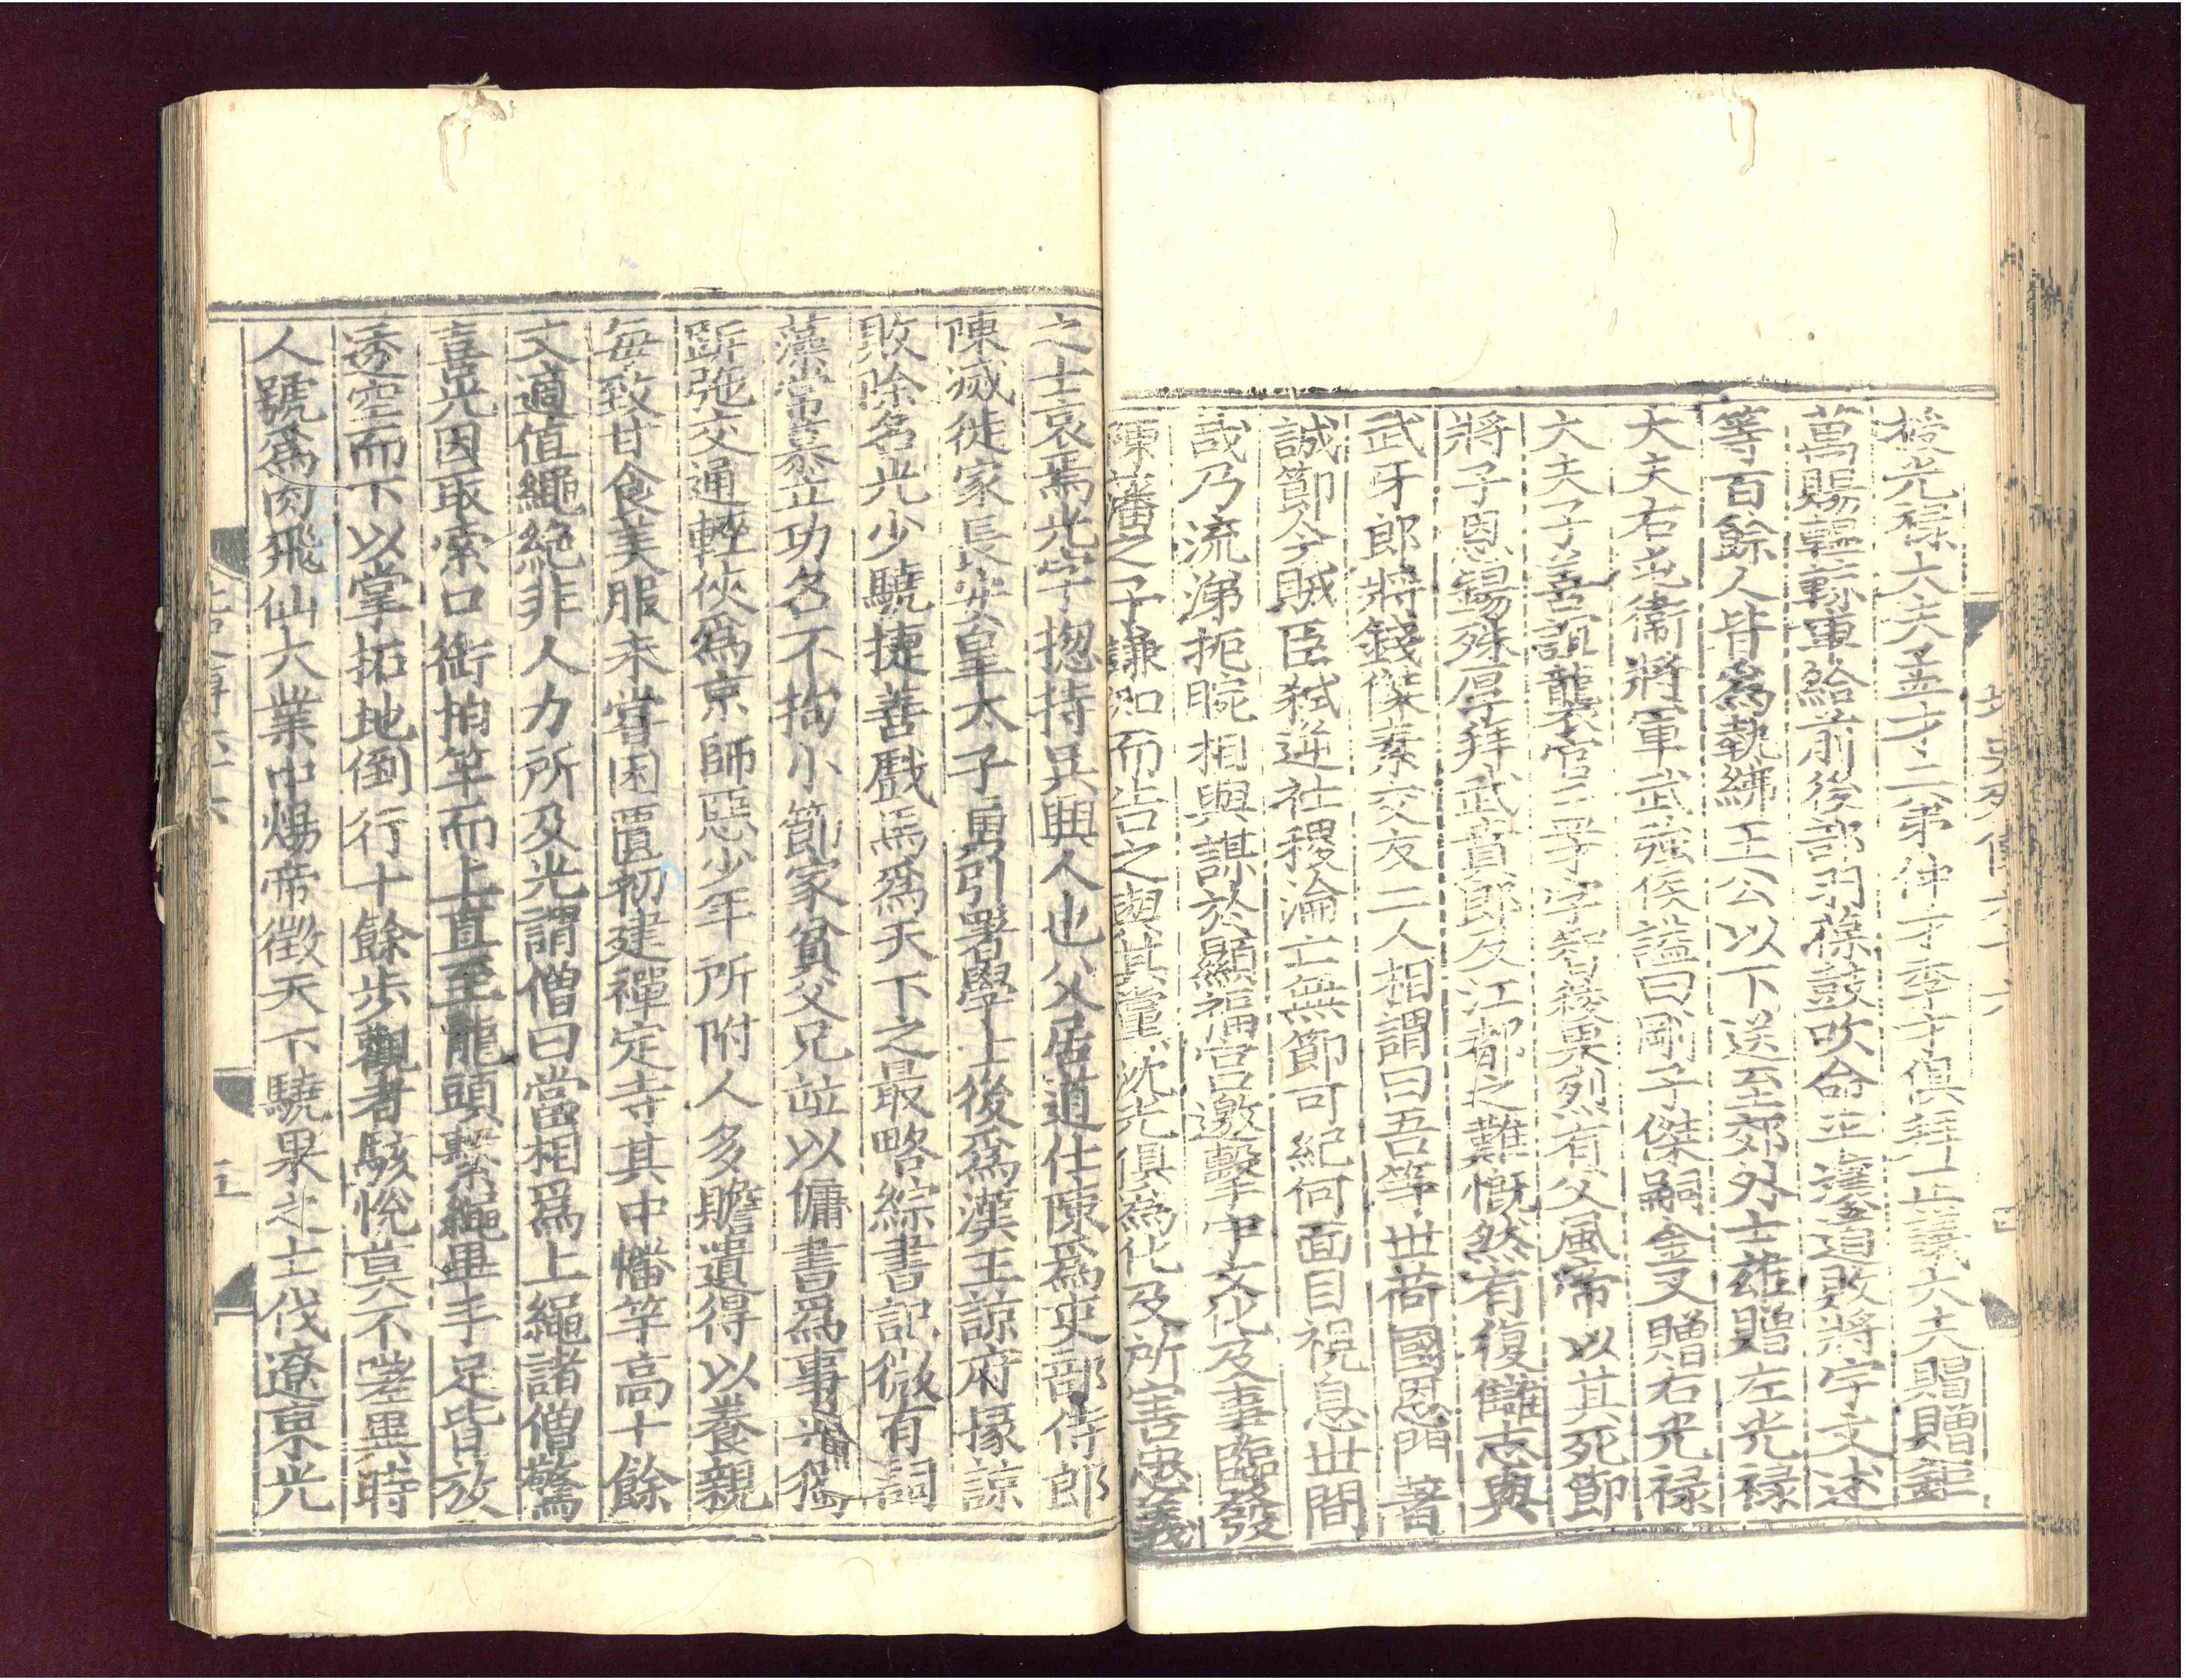 授光禄大夫孟才二弟仲才季才俱拜正議大夫贈賻鉅
萬賜轀輬車給前後部羽葆鼓吹命王薄追敗將宇文述
等百餘人皆爲執紼王公以下送至郊外士雄贈左光禄
大夫右屯衛將軍武強侯謚曰剛子傑嗣金叉贈右光禄
大夫子善誼襲官三子字智稜果烈有父風帝以其死節
將子恩錫殊厚拜武賁郎及江都之難慨然有復讎志與
武牙郎將錢傑素交友二人相謂曰吾等世荷國恩門著
誠節今賊臣弑逆社稷淪亡無節可紀何面目視息世間
哉乃流涕扼腕相與謀於顯福宫邀擊宇文化及事臨發
陳藩之子謙知而告之與其黨沈光俱為化及所害忠義
北史列傳六十六
四
之士哀焉光字惣持吳興人也父居道仕陳爲吏部侍郎
陳滅徙家長安皇太子勇引署學士後爲漢王諒府掾諒
敗除名光少驍捷善戲馬爲天下之最略綜書記微有詞
藻常慕立功名不拘小節家貧父兄竝以傭書爲事光獨
跅弛交通輕俠爲京師惡少年所附人多贍遺得以養親
每致甘食美服未嘗困匱初建禪定寺其中幡竿高十餘
丈適值繩絶非人力所及光謂僧曰當相爲上繩諸僧驚
喜光因取索口銜拍竿而上直至龍頭繫繩畢手足皆放
透空而下以掌拓地倒行十餘步觀者駭悅莫不嗟異時
人號爲肉飛仙大業中煬帝徵天下驍果之士伐遼東光
五